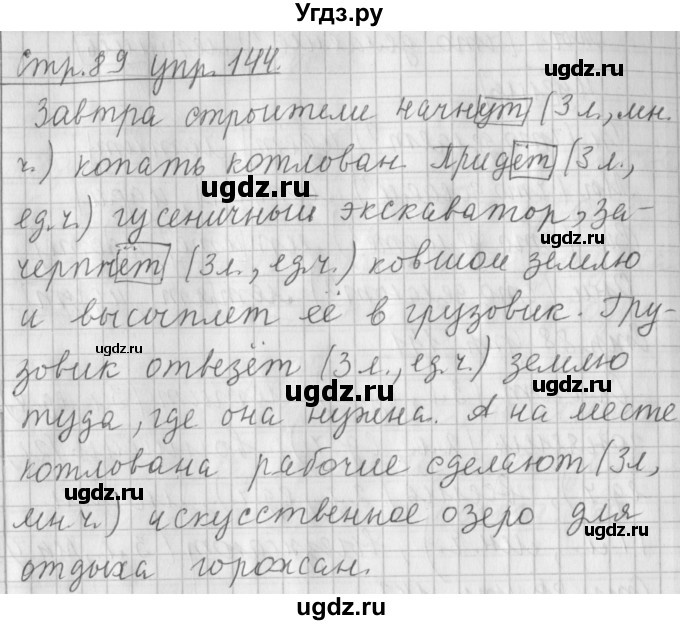 Угдз.ру
Стр.89 упр.144.
Завтра строители начнут (3 л., мн.
ч.) копать котлован. Придёт (3 л.,
ед.ч.) гусеничный экскаватор, за-
черпнёт (3 л., ед.ч.) ковшом землю
и высыплет её в грузовик. Гру-
зовик отвезёт (3 л., ед.ч.) землю
туда, где она нужна. А на месте
котлована рабочие сделают (3 л,
мн.ч.) искусственное озеро для
отдыха горожан.
ugdz.ru
ugdz.ru
ugdz.ru
ugdz.ru
ugdz.ru
ugdz.ru
ugdz.ru
ugdz.ru
ugdz.ru
ugdz.ru
ugdz.ru
ugdz.ru